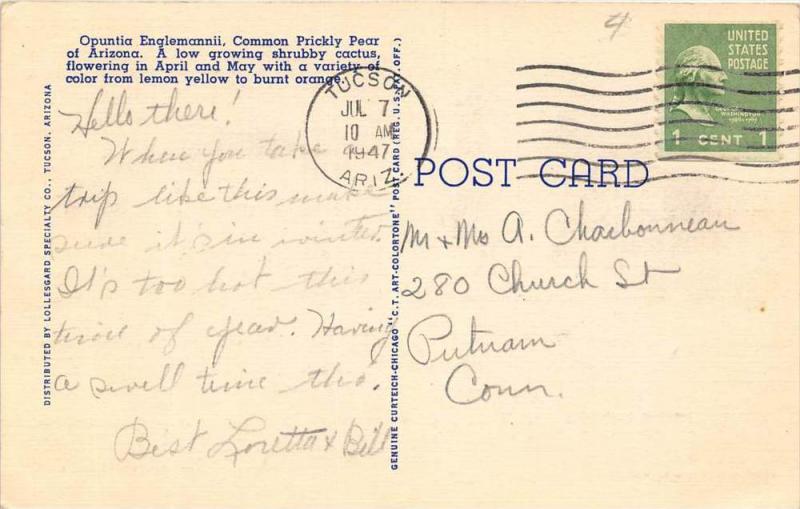 Opuntia Englemannii, Common Prickly Pear
of Arizona. A low growing shrubby cactus,
flowering in April and May with a variety of
color from lemon yellow to burnt orange.
Hello there!
When you take a
trip like this make
sure it's in winter.
It's too hot this
time of year. Having
a swell time tho'.
Best Loretta & Bill
DISTRIBUTED BY LOLLESGARD SPECIALTY CO., TUCSON, ARIZONA
GENUINE CURTEICH-CHICAGO "C.T. ART-COLORTONE" POST CARD (REG. U.S. PAT. OFF.)
TUCSON
JUL 7
10 AM
1947
ARIZ.
4
UNITED
STATES
POSTAGE
GEORGE
WASHINGTON
1 CENT 1
POST CARD
Mr + Mrs A. Charbonneau
280 Church St
Putnam
Conn.